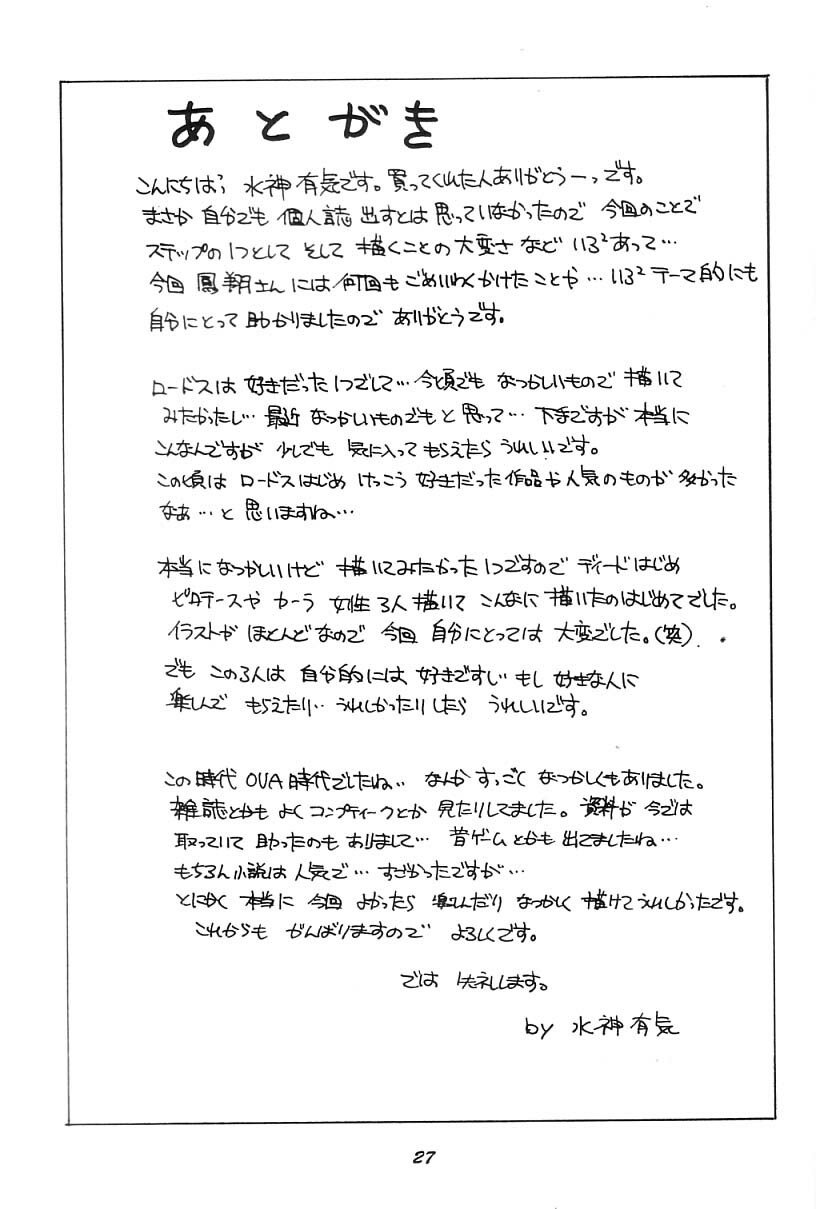 あとがき
こんにちは、水神有気です。買ってくれた人ありがとうーっです。
まさか 自分でも 個人誌 出すとは思っていなかったので 今回のことで
ステップの1つとして そして 描くことの大変さなど いろ²あって…
今回 鳳翔さんには何回もごめいわくかけたことや…いろ²テーマ的にも
自分にとって助かりましたので ありがとうです。
ロードスは 好きだった1つでして…今頃でも なつかしいもので 描いて
みたかったし…最近 なつかしいものでもと思って…下手ですが本当に
こんなんですが 少しでも 気に入ってもらえたら うれしいです。
この頃は ロードスはじめ けっこう 好きだった作品や人気のものが 多かった
なぁ…と 思いますね…
本当になつかしいけど 描いてみたかった1つですので ディードはじめ
ピロテースや カーラ 女性3人描いて こんなに 描いたのはじめてでした。
イラストが ほとんどなので 今回 自分にとっては 大変でした。(笑)
でも この3人は 自分的には、好きですし もし 好きな人に
楽しんで もらえたり… うれしかったりしたら うれしいです。
この時代 OVA時代でしたね… なんか すっごく なつかしくもありました。
雑誌とかも よく コンプティークとか 見たりしてました。資料が 今では
取っていて 助ったのも ありまして… 昔ゲームとかも 出てましたね…
もちろん小説は 人気で… すごかったですが…
とにかく 本当に 今回 よかったら 楽しんだり なつかしく 描けてうれしかったです。
これからも がんばりますので よろしくです。
では 失礼します。
by 水神有気
27